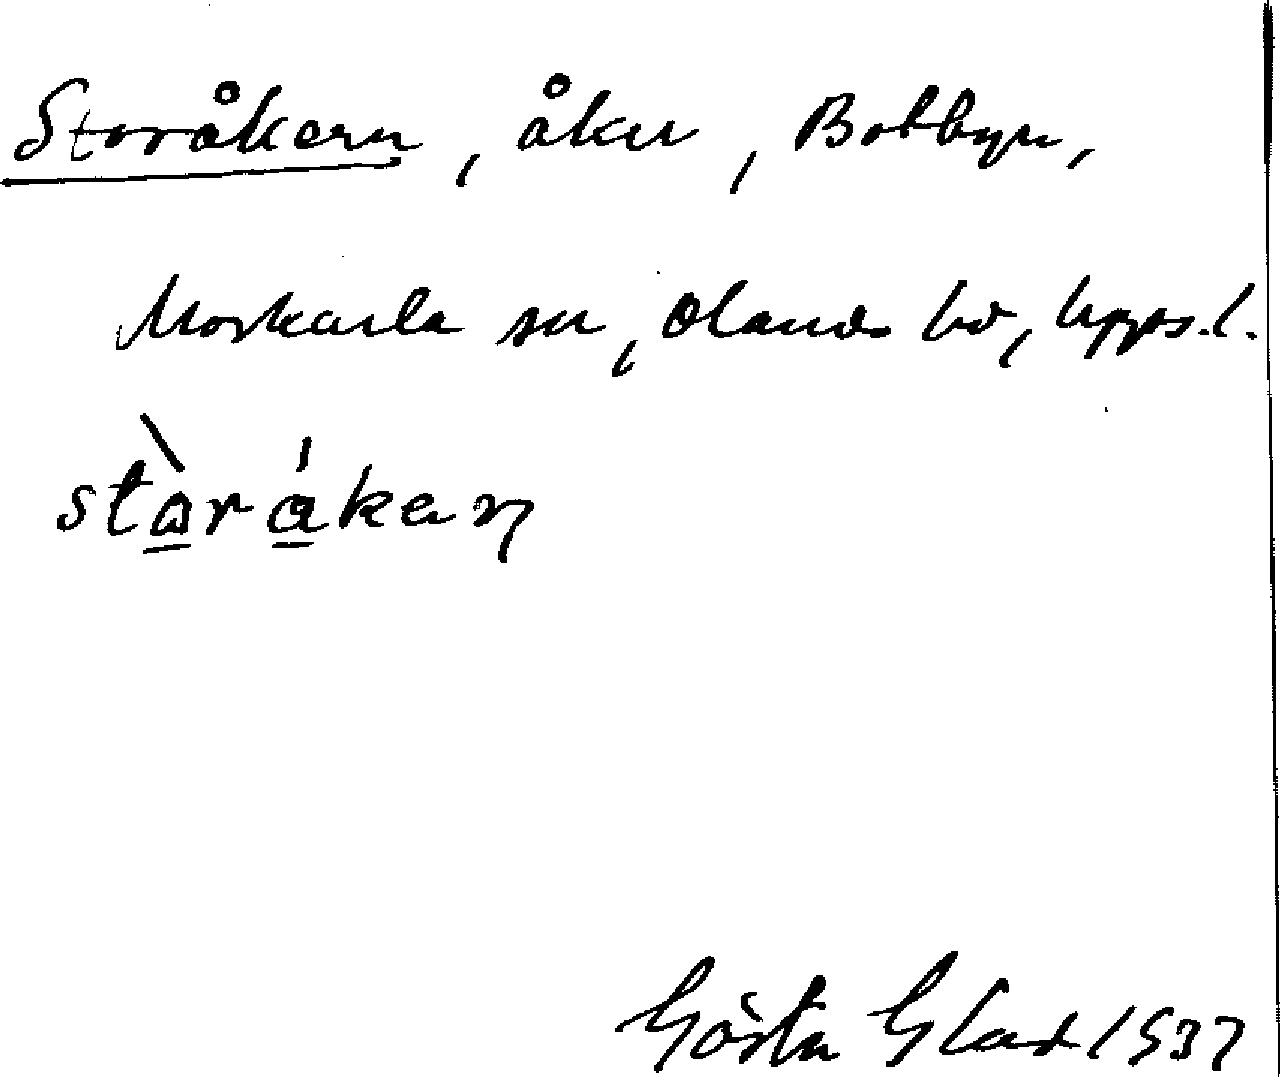 Storåkern, åker, Bobbyn,
Morkarla sn, Olands hd, Upps.l.
stàrákaɳ
Gösta Glad 1937